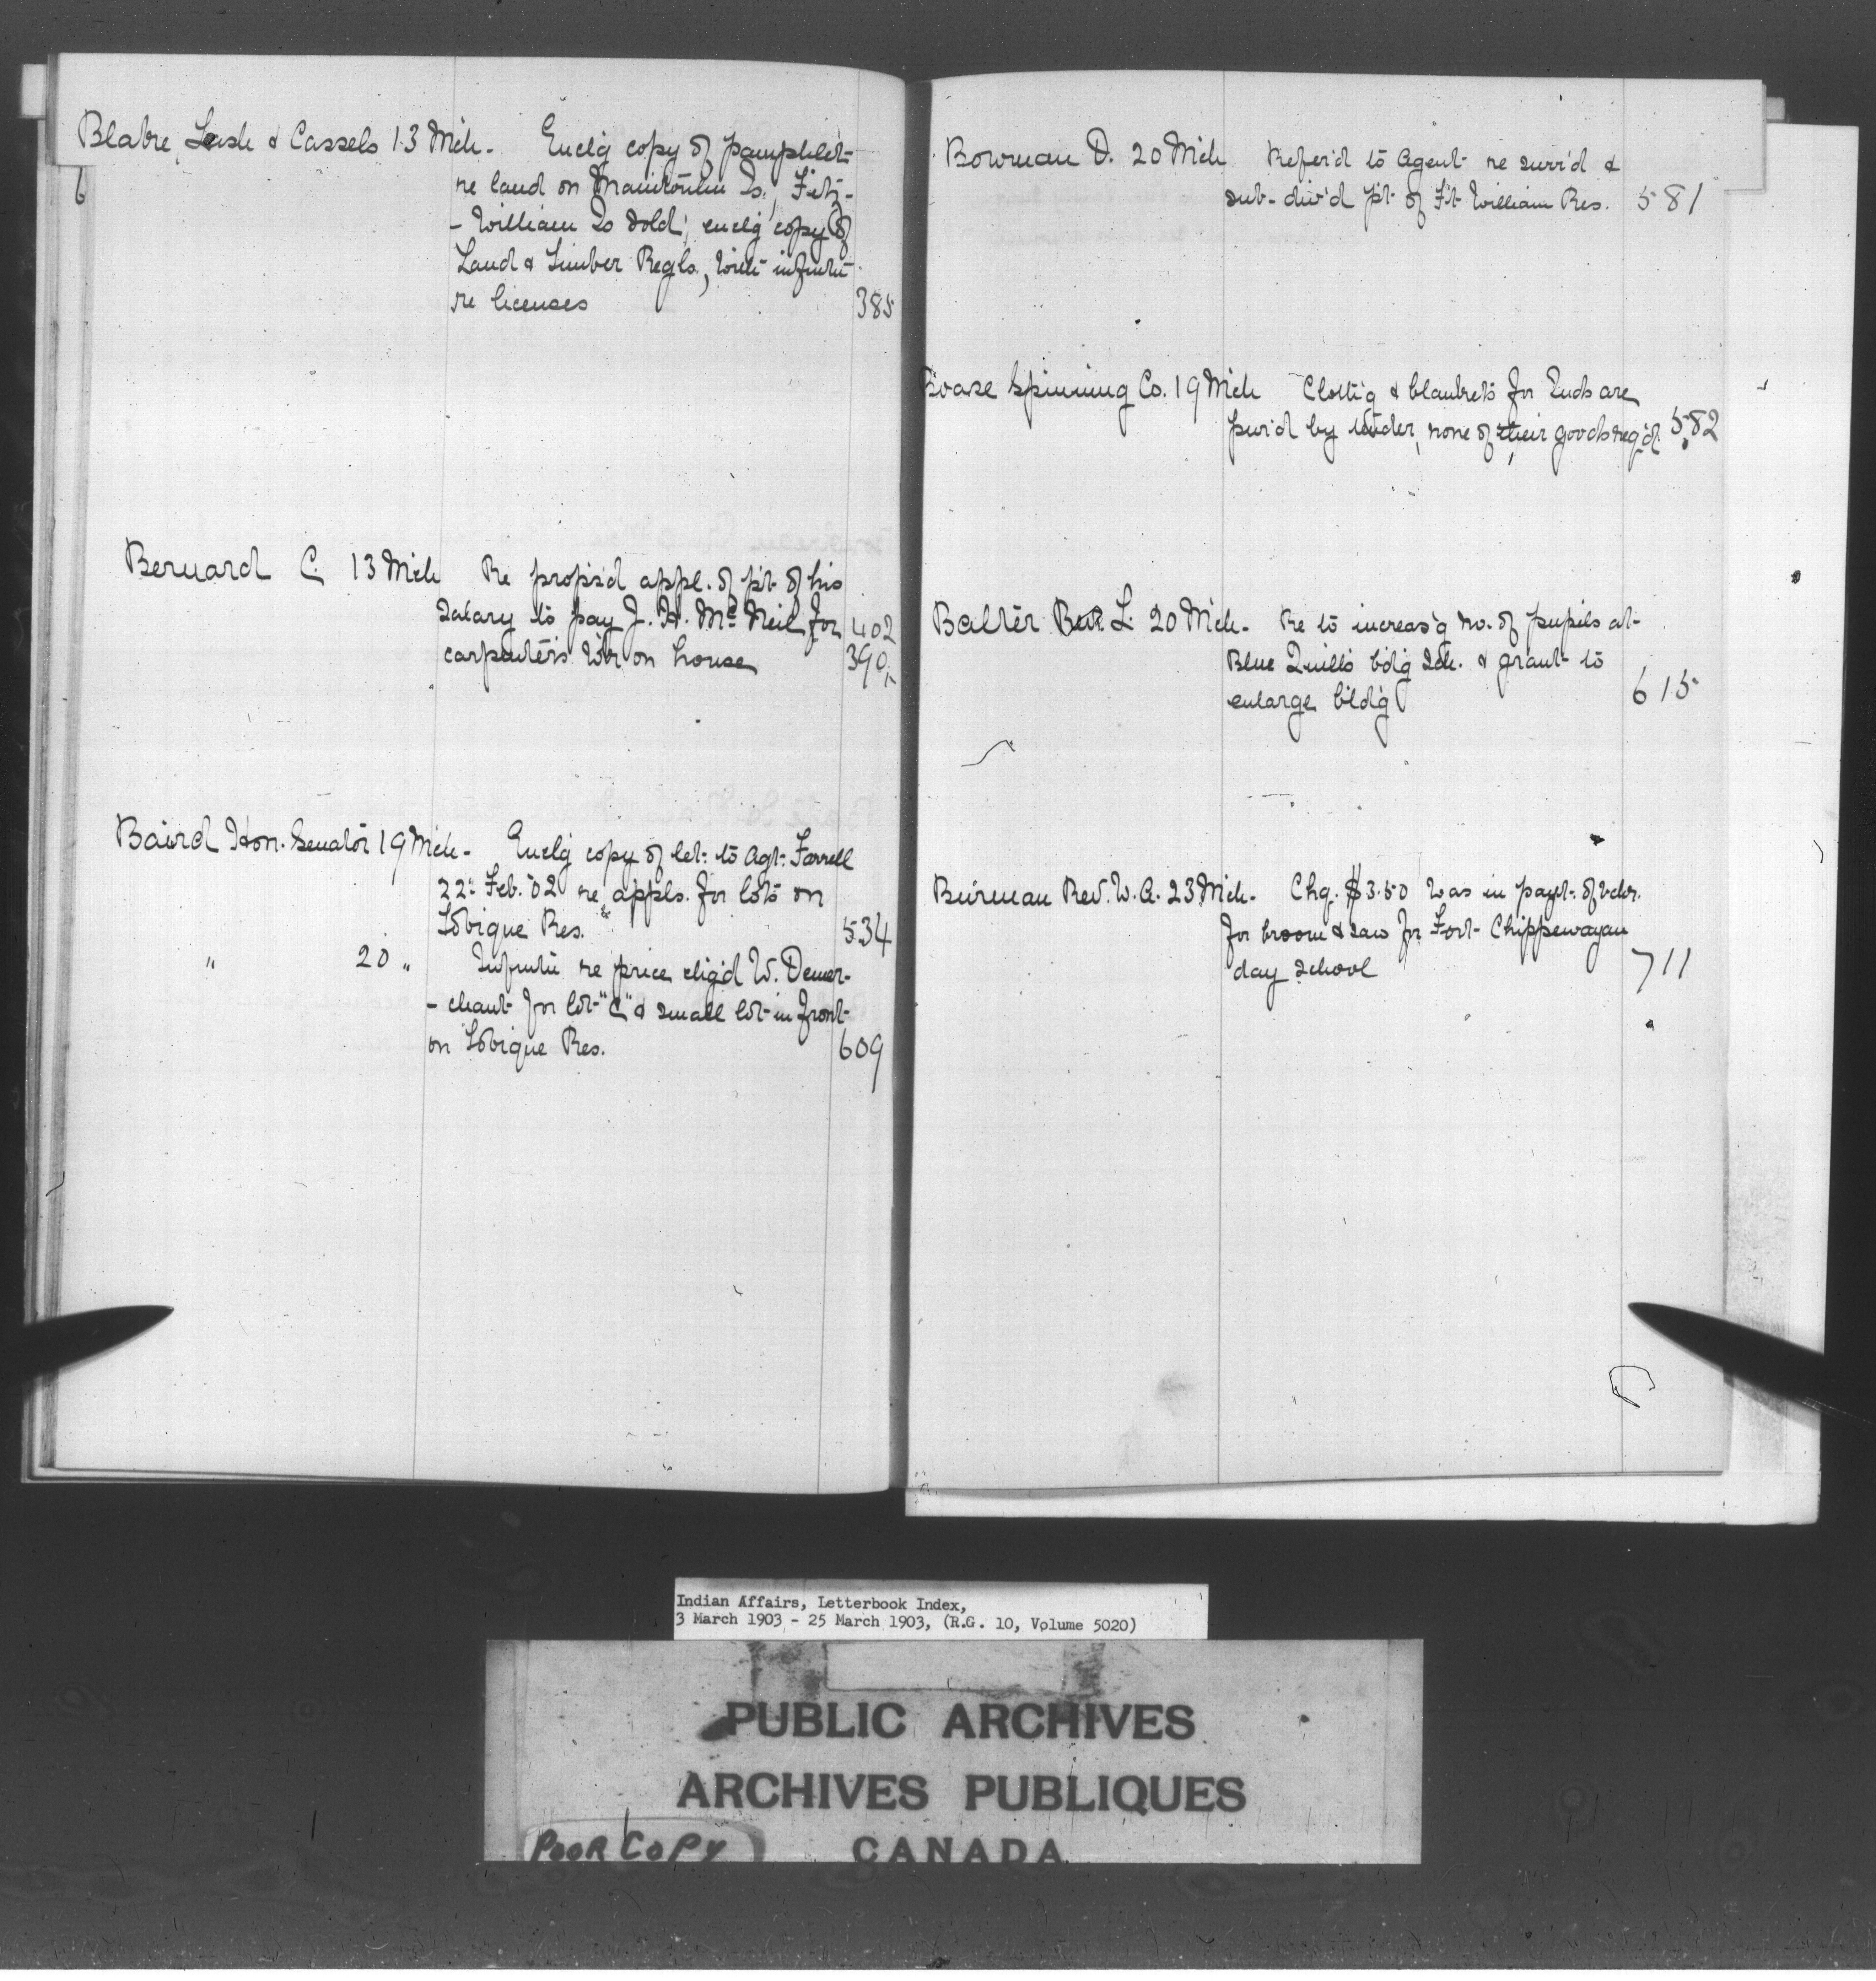 Blake, Lash & Cassels 13 Mch- Enclg copy of pamphlet
re land on Manitoulin Is., Fitz-
-william Is sold; enclg copy of
Land & Timber Regls, with infmtn
re licenses 385
Bernard C. 13 Mch Re propos'd appl. of p't of his
salary to pay J. H. McNeil for 402
carpenter's wk on house 390½
Baird Hon. Senator 19 Mch- Enclg copy of let: to Agt. Farrell
22: Feb. '02 re appls. for lots on
Tobique Res. 534
" 20 " Infmtn re price chg'd W. Demer-
-chant for lot "C" & small lot in front
on Tobique Res. 609
Bowman D. 20 Mch Refer'd to Agent re surr'd &
sub-div'd p't of Ft William Res. 581
Boase Spinning Co. 19 Mch Cloth'g & blankets for Inds are
pur'd by tender, none of their goods req'd 582
Balter L. 20 Mch- Re to increas'g no. of pupils at
Blue Quills bdg Sch. & grant to
enlarge bld'g 615
Burman Rev. W. A. 23 Mch- Chg. $3.50 was in payt. of vchr.
for broom & saw for Fort Chippewayan
day school 711
Indian Affairs, Letterbook Index,
3 March 1903 - 25 March 1903, (R.G. 10, Volume 5020)
PUBLIC ARCHIVES
ARCHIVES PUBLIQUES
CANADA
POOR COPY